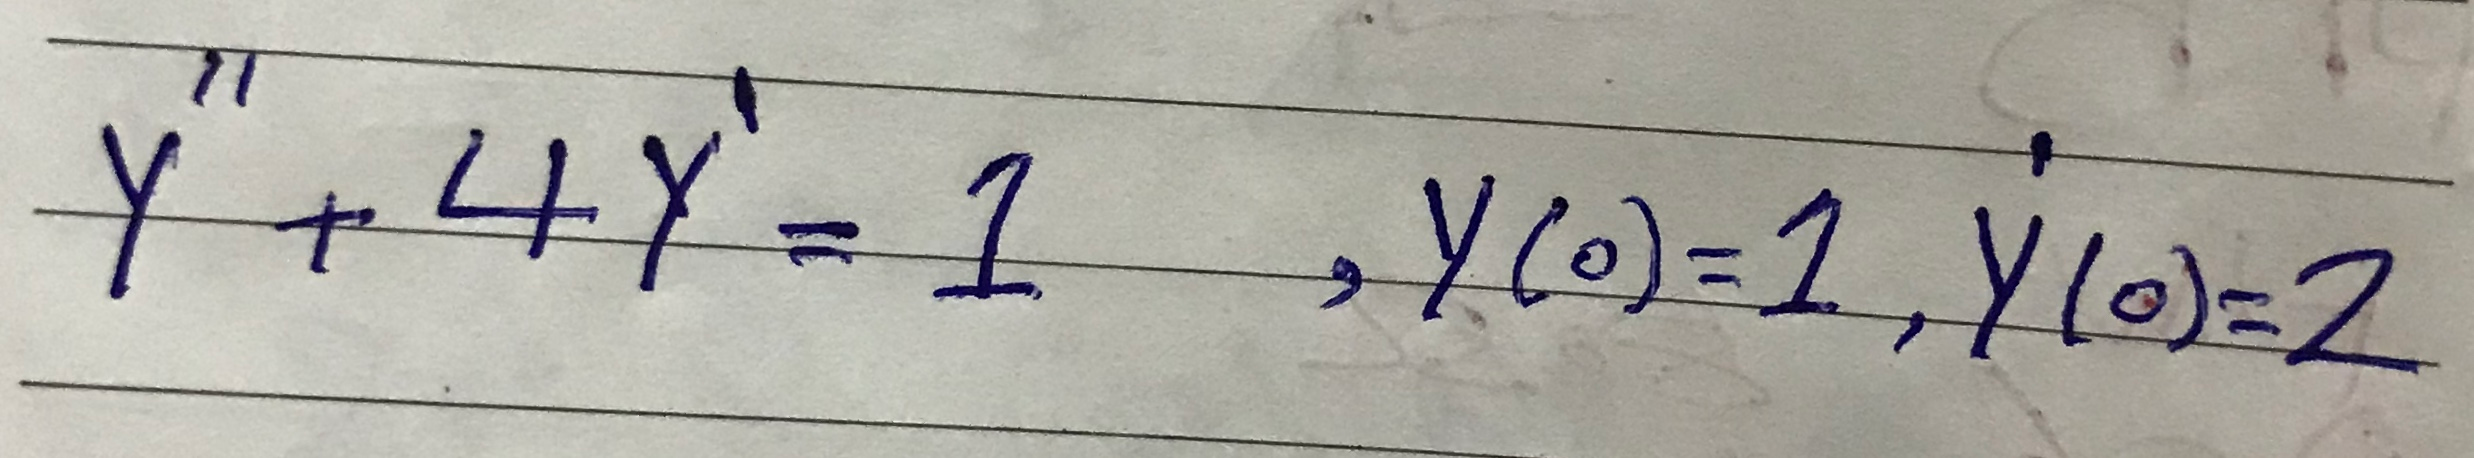 y'' + 4y' = 1 , y(0)=1, y'(0)=2